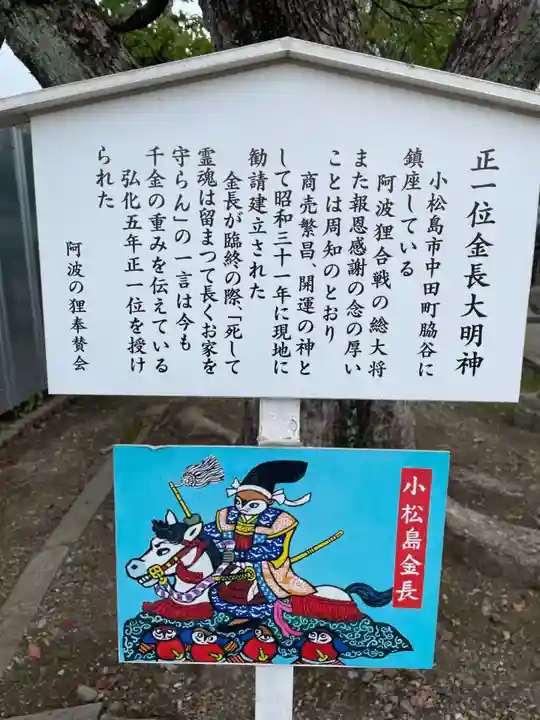 正一位金長大明神
小松島市中田町脇谷に
鎮座している
阿波狸合戦の総大将
また報恩感謝の念の厚い
ことは周知のとおり
商売繁昌、開運の神と
して昭和三十一年に現地に
勧請建立された
金長が臨終の際、「死して
霊魂は留まつて長くお家を
守らん」の一言は今も
千金の重みを伝えている
弘化五年正一位を授け
られた
阿波の狸奉賛会
小松島金長